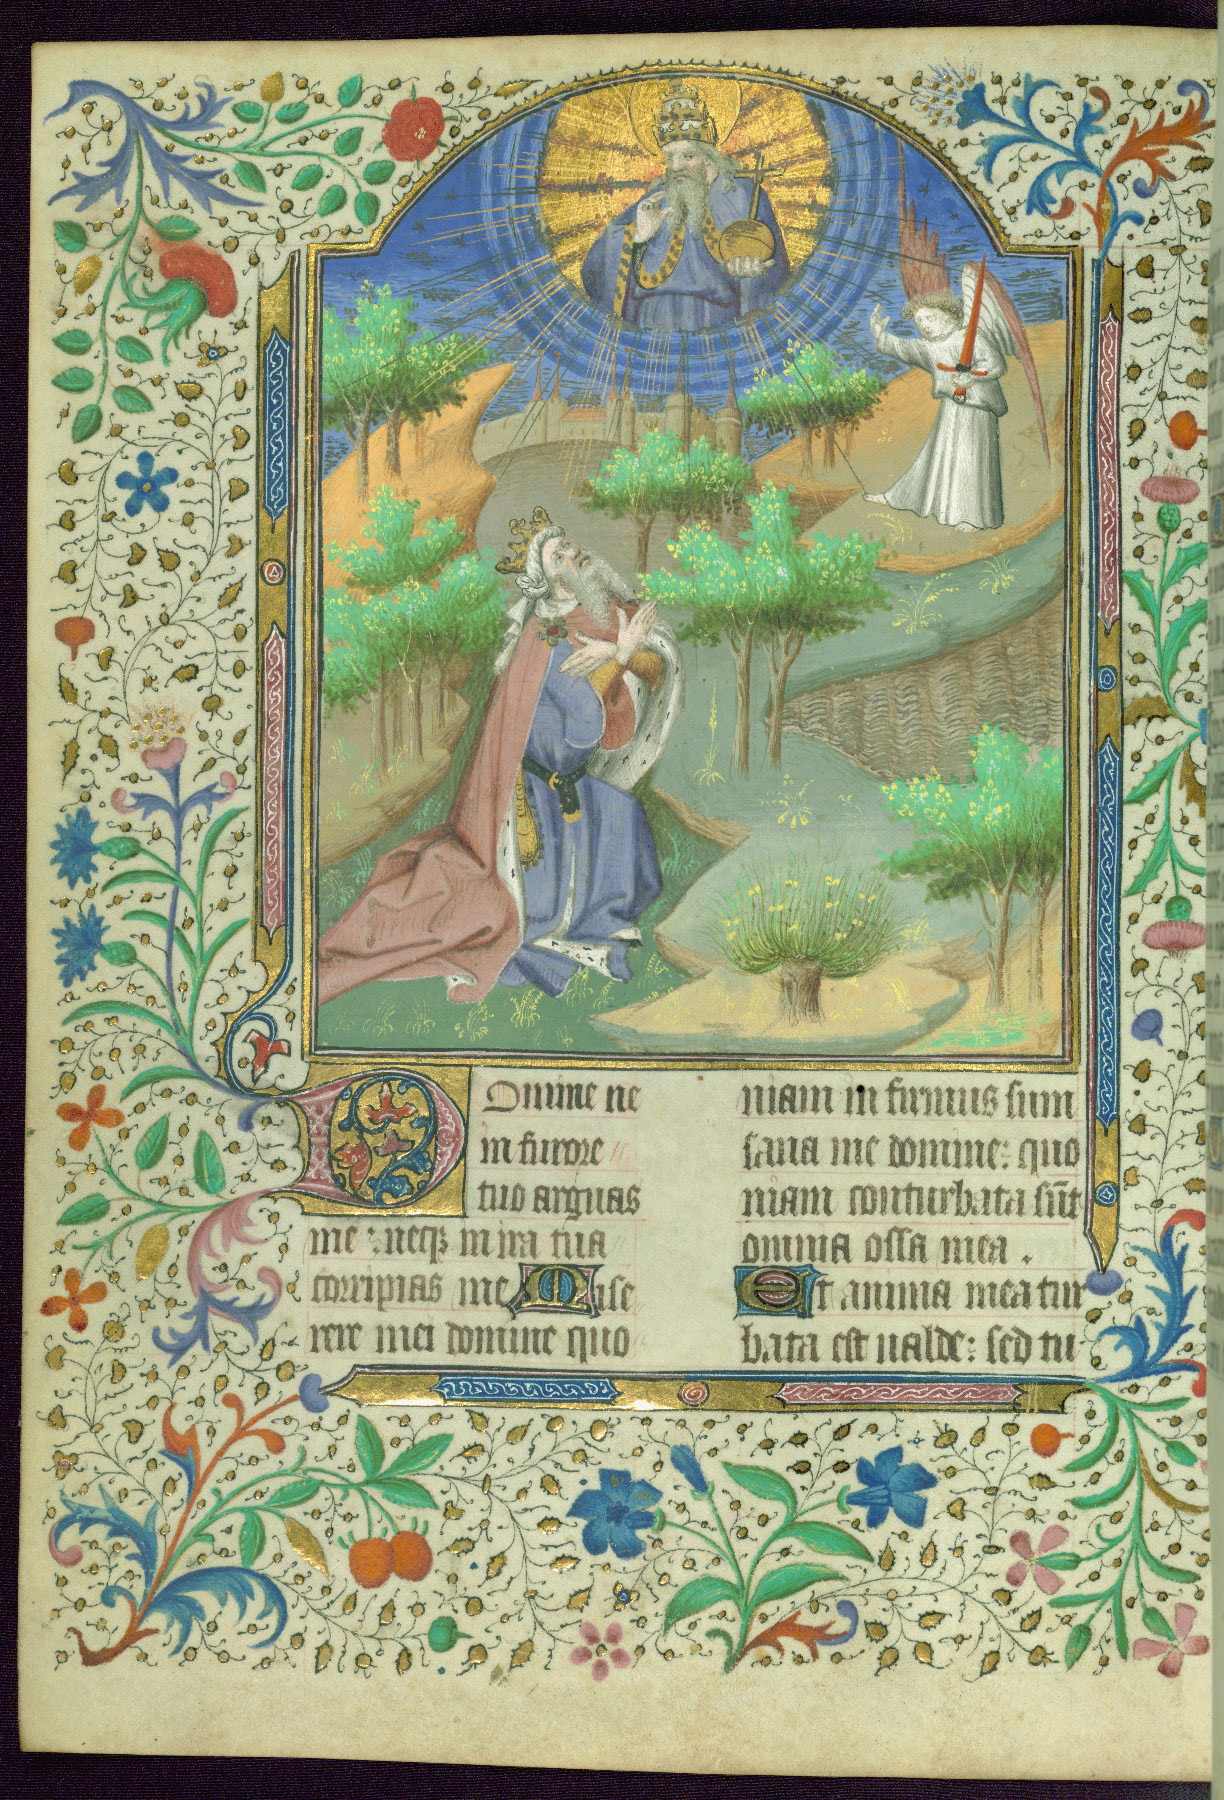 Domine ne
in furore
tuo arguas
me : neqꝫ in ira tua
corripias me Mise
rere mei domine quo
niam in firmus sum
sana me domine: quo
niam conturbata sūt
omnia ossa mea .
Et anima mea tur
bata est ualde: sed tu